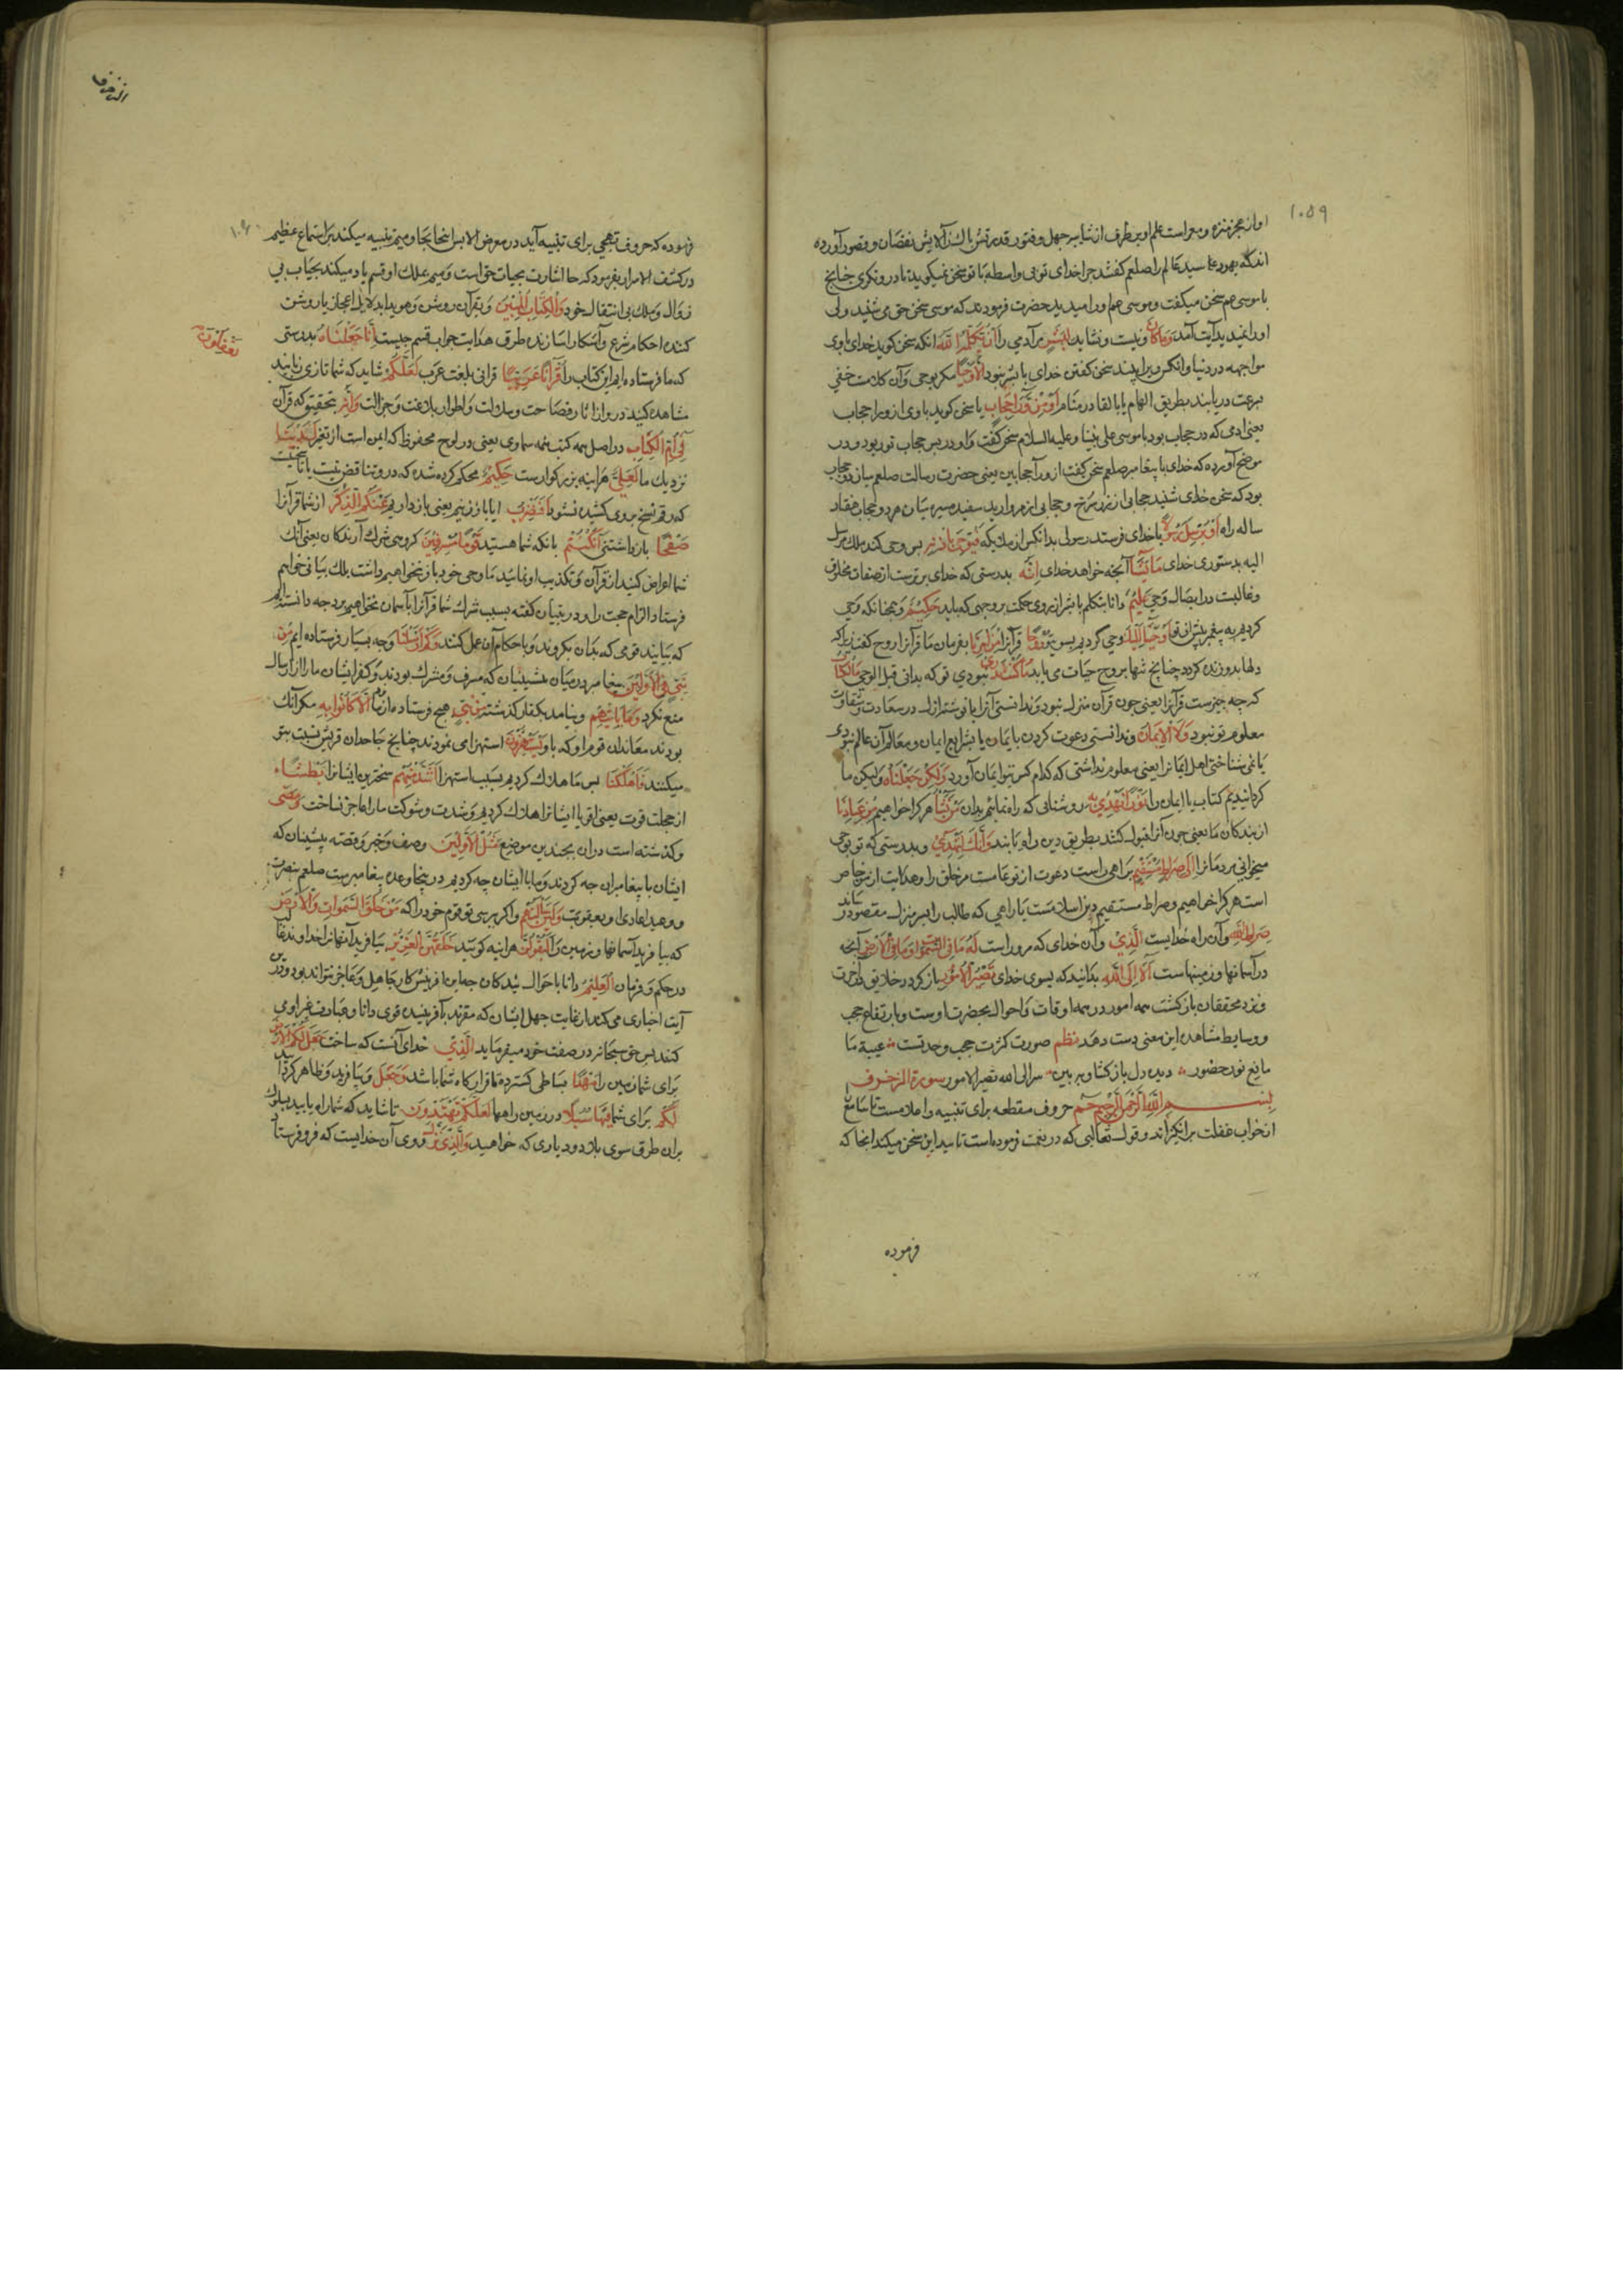 ۱۰۵۹
او از عجز منزه و مبراست علم او بر طرف از شایبه جهل و فتور قدرتش پاک از آلایش نقصان و قصور آورده
اند که یهود با سید عالم را صلعم گفتند چرا خدای تو بی واسطه با تو سخن نمیگوید تا در و نگری چنانچ
با موسی هم سخن میگفت و موسی هم او را میدید حضرت فرمودند که موسی سخن حق می شنید ولی
او را ندید بدآیت آمد وَمَا كَانَ و نیست و نشاید لِبَشَرٍ مر آدمی را أَنْ يُكَلِّمَهُ اللَّهُ انکه سخن گوید خدای با وی
مواجهه در دنیا و انکس ویرا بیند سخن کفتن خدای با بشر نبود إِلَّا وَحْيًا مکر بوحی و آن کلامیست خفی
بسرعت دریابند بطریق الهام یا بالقا در منام أَوْ مِنْ وَرَاءِ حِجَابٍ یا سخن کوید با وی از ورا حجاب
یعنی ادمی که در حجاب بود با موسی علی نبینا و علیه السلام سخن کفت و او در پس حجاب نور بود و در
موضح آورده که خدای با پیغامبر صلعم سخن کفت از ورآ حجابین یعنی حضرت رسالت صلعم میان دو حجاب
بود که سخن خدای شنید حجابی از زر سرخ و حجابی از مروارید سفید مسیره میان هر دو حجاب هفتاد
ساله راه أَوْ يُرْسِلَ رَسُولًا یا خدای فرستد رسولی بدانکس از ملایکه فَيُوحِيَ بِإِذْنِهِ پس وحی کند ملک مرسل
الیه بدستوری خدای مَا يَشَاءُ آنچه خواهد خدای إِنَّهُ بدرستی که خدای برترست از صفات مخلوق
و غالبست در ایصال وحی عَلِيٌّ دانا بتکلم با بشر از روی حکمت بر وجهی که باید حَكِيمٌ و همچنانکه وحی
کردیم به پیغمبر پیش از تو أَوْحَيْنَا إِلَيْكَ وحی کردیم بسوی تو رُوحًا قرآنرا مِنْ أَمْرِنَا بفرمان ما قرآنرا روح کفت زیرا که
دلها بدو زنده کردد چنانچ تنها بروح حیات می یابد مَا كُنْتَ تَدْرِي نبودی تو که بدانی قبل الوحی مَا الْكِتَابُ
که چه چیزست قرآنرا یعنی چون قرآن منزل نبود و ندانستی آنرا یا نوشته ازلی در سعادت و شقاوت
معلوم تو نبود وَلَا الْإِيمَانُ و ندانستی دعوت کردن بایمان یا بشرایع ایمان و معالم آن عالم نبودی
یا نمی شناختی اهل ایمانرا یعنی معلوم نداشتی که کدام کس بتو ایمان آورد وَلَكِنْ جَعَلْنَاهُ ولیکن ما
کردانیدیم کتاب یا ایمان را نُورًا نَهْدِي بِهِ روشنایی که راه نماییم بدان مَنْ نَشَاءُ هرکرا خواهیم مِنْ عِبَادِنَا
از بندکان ما یعنی چون آنرا قبول کنند بطریق دین راه یابند وَإِنَّكَ لَتَهْدِي و بدرستی که تو بوحی
میخوانی مردمانرا إِلَى صِرَاطٍ مُسْتَقِيمٍ براهی راست دعوت از تو عامست مر خلق را و هدایت از من خاص
است هرکرا خواهیم و صراط مستقیم دین اسلامست یا راهی که طالب را بسر منزل مقصود رساند
صِرَاطِ اللَّهِ و آن راه خدایست الَّذِي و آن خدای که مر وراست لَهُ مَا فِي السَّمَوَاتِ وَمَا فِي الْأَرْضِ آنچه
در آسمانها و زمینهاست أَلَا إِلَى اللَّهِ بدانید که بسوی خدای تَصِيرُ الْأُمُورُ باز کردد خلایق در آخرت
و نزد محققان باز کشت همه امور در همه اوقات و احوال بحضرت اوست و بارتفاع حجب
و وسایط مشاهده این معنی دست دهد نظم صورت کثرت حجب وحدتست غیبه ما
مانع نور حضور دیده دل باز کشا و ببین سر الی الله تصیر الامور سورة الزخرف
بسم الله الرحمن الرحیم حم حروف مقطعه برای تنبیه و اعلامست تا سامع
از خواب غفلت برانکیزاند و قول تعالبی که در نغمت فرموده است تایید این سخن میکند انجا که
فرموده
الزخرف
۱۰۶۰
فرموده که حروف تهجی برای تنبیه آید در معرض الا پس اینجا بحا و میم تنبیه میکند بر استماع عظیم
در کشف الاسرار بفرمود که حا اشارت بحیات حق است و میم بملک او قسم یاد میکند بحیات بی
زوال و ملک بی انتقال خود وَالْكِتَابِ الْمُبِينِ و بقرآن روشن و هویدا بدلایل اعجاز یا روشن
کننده احکام شرع و آشکارا سازنده طرق هدایت جواب قسم چیست إِنَّا جَعَلْنَاهُ بدرستی
که ما فرستاده ایم این کتاب را قُرْآنًا عَرَبِيًّا قرانی بلغت عرب لَعَلَّكُمْ شاید که شما تازی زبانید
تَعْقِلُونَ
مشاهده کنید درو از آثار فصاحت و سلاست و اطوار بلاغت و جزالت وَإِنَّهُ بتحقیق که قرآن
فِي أُمِّ الْكِتَابِ در اصل همه کتب همه سماوی یعنی در لوح محفوظ که ایمن است از تغیر لَدَيْنَا
نزدیک ما لَعَلِيٌّ هراینه بزرکوارست حَكِيمٌ محکم کرده شده که درو تناقض نیست یا ناسخیست
که رقم نسخ بروی کشیده نشود أَفَنَضْرِبُ ایا باز زنیم یعنی باز داریم عَنْكُمُ الذِّكْرَ از شما قرآنرا
صَفْحًا باز داشتنی أَنْ كُنْتُمْ بانکه شما هستید قَوْمًا مُسْرِفِينَ کروهی شرک آرندکان یعنی آنک
شما اعراض کنید از قرآن و تکذیب او نمائید ما وحی خود باز نخواهیم داشت بلک بیانی خواهیم
فرستاد الزام حجت را و در تبیان کفته بسبب شرک شما قرآنرا بآسمان نخواهیم برد چه دانسته ایم
که بیایند قومی که بدان بکروند و باحکام آن عمل کنند وَكَمْ أَرْسَلْنَا و چه بسیار فرستاده ایم مِنْ
نَبِيٍّ فِي الْأَوَّلِينَ پیغامبر در میان پیشینیان که مسرف و مشرک بودند و کفر ایشان ما را از ارسال
منع نکرد وَمَا يَأْتِيهِمْ و نیامد بکفار کذشته مِنْ نَبِيٍّ هیچ فرستاده از ما إِلَّا كَانُوا بِهِ مکر آنک
بودند معاندان قوم او که باو يَسْتَهْزِئُونَ استهزا می نمودند چنانچ جاحدان قریش نسبت بتو
میکنند فَأَهْلَكْنَا پس ما هلاک کردیم بسبب استهزا أَشَدَّ مِنْهُمْ سختترین ایشانرا بَطْشًا
از جهت قوت یعنی اقویا ایشانرا هلاک کردیم و شدت و شوکت ما را عاجز نساخت وَمَضَى
و کذشته است در آن بچندین موضع مَثَلُ الْأَوَّلِينَ وصف و خبر و قصه پیشینیان که
ایشان با پیغامبران چه کردند و ما با ایشان چه کردیم در پنجا وعده پیغامبرست صلعم بنصرت
و وعید اعادی او بعقوبت وَلَئِنْ سَأَلْتَهُمْ و اگر برسی تو قوم خود را که مَنْ خَلَقَ السَّمَوَاتِ وَالْأَرْضَ
که بیافرید آسمانها و زمین را لَيَقُولُنَّ هراینه کویند خَلَقَهُنَّ الْعَزِيزُ بیافرید آنهانرا خداوند غالب
در حکم و فرمان الْعَلِيمُ دانا باحوال بندکان چه این افرینش کار جاهل و عاجز نتواند بود و درین
آیت اخباری می کند از غایت جهل ایشان که مقرند بآفرینیده قوی دانا و عبادت غیر او می
کنند پس حق سبحانه در صفت خود میفرماید الَّذِي خدای آنست که ساخت جَعَلَ لَكُمُ الْأَرْضَ
برای شما زمین را مَهْدًا بساطی کسترده تا قرارکاه شما باشد وَجَعَلَ و بیافرید و ظاهر کردانید
لَكُمْ برای شما فِيهَا سُبُلًا در زمین راهها لَعَلَّكُمْ تَهْتَدُونَ تا شاید که شما راه یابید بسلوک
بران طرق سوی بلاد و دیاری که خواهید وَالَّذِي نَزَّلَ و وی آن خدایست که فرو فرستاد